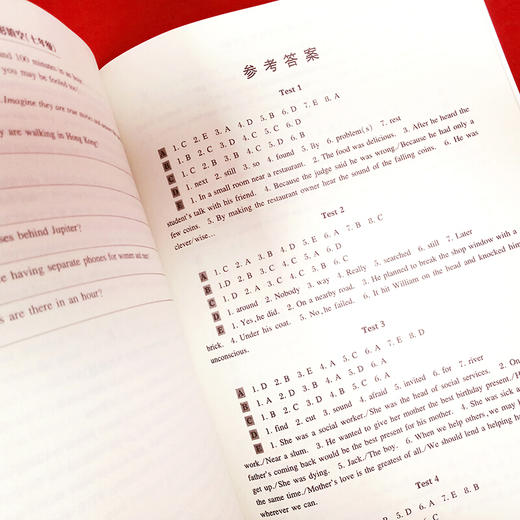 形填空(七年级)
and 100 minutes in an hour
you may be fooled too!
Imagine they are true stories and answer the
y are walking in Hong Kong?
ses behind Jupiter?
e having separate phones for women and men?
s are there in an hour?
参考答案
Test 1
A 1. C 2. E 3. A 4. D 5. B 6. D 7. E 8. A
B 1. B 2. C 3. D 4. C 5. C 6. D
C 1. C 2. B 3. B 4. C 5. D 6. B
D 1. next 2. still 3. so 4. found 5. By 6. problem(s) 7. rest
E 1. In a small room near a restaurant. 2. The food was delicious. 3. After he heard the
student's talk with his friend. 4. Because the judge said he was wrong./Because he had only a
few coins. 5. By making the restaurant owner hear the sound of the falling coins. 6. He was
clever/wise...
Test 2
A 1. C 2. A 3. B 4. D 5. E 6. A 7. B 8. C
B 1. D 2. B 3. C 4. C 5. A 6. D
C 1. D 2. A 3. C 4. C 5. B 6. C
D 1. around 2. Nobody 3. way 4. Really 5. searched 6. still 7. Later
E 1. Yes, he did. 2. On a nearby road. 3. He planned to break the shop window with a
brick. 4. Under his coat. 5. No, he failed. 6. It hit William on the head and knocked him
unconscious.
Test 3
A 1. D 2. B 3. E 4. A 5. C 6. A 7. E 8. D
B 1. A 2. D 3. B 4. A 5. D 6. A
C 1. B 2. C 3. D 4. B 5. C 6. A
D 1. find 2. cut 3. sound 4. afraid 5. invited 6. for 7. river
E 1. She was a social worker./She was the head of social services. 2. On
work./Near a slum. 3. He wanted to give her mother the best birthday present./H
father's coming back would be the best present for his mother. 4. She was sick a
get up./She was dying. 5. Jack./The boy. 6. When we help others, we may
the same time./Mother's love is the greatest of all./We should lend a helping
wherever we can.
Test 4
D 6. A 7. E 8. B